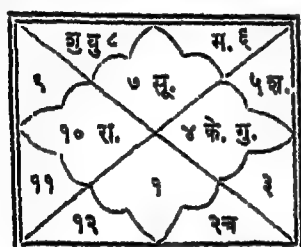 शु बु ८ म. ६
९ ७ सू. ५ श.
१० रा. ४ के. गु.
११ १ ३
१२ २ च